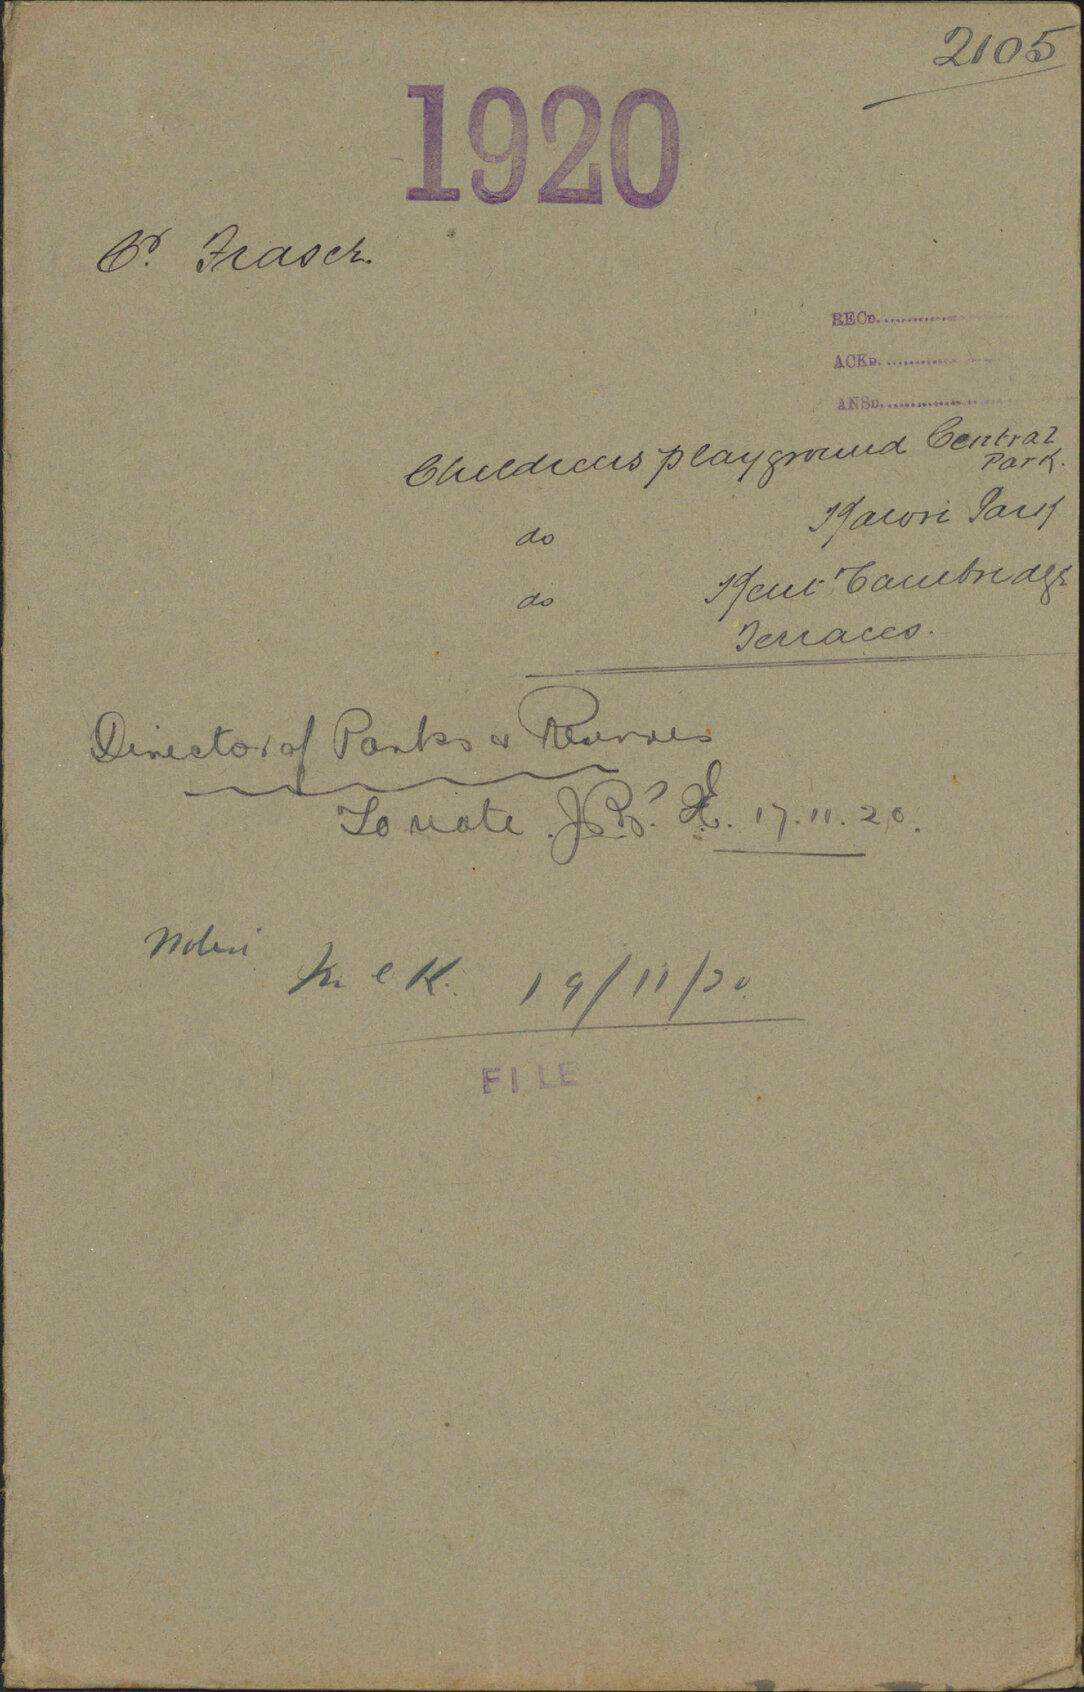 2105
1920
Cr. Fraser.
RECD.
ACKD.
ANSD.
Childrens playground Central
Park.
do Karori Park
do Kent Cambridge
Terraces.
Director of Parks & Reserves
To note. 17.11.20.
Noted
19/11/20.
FILE